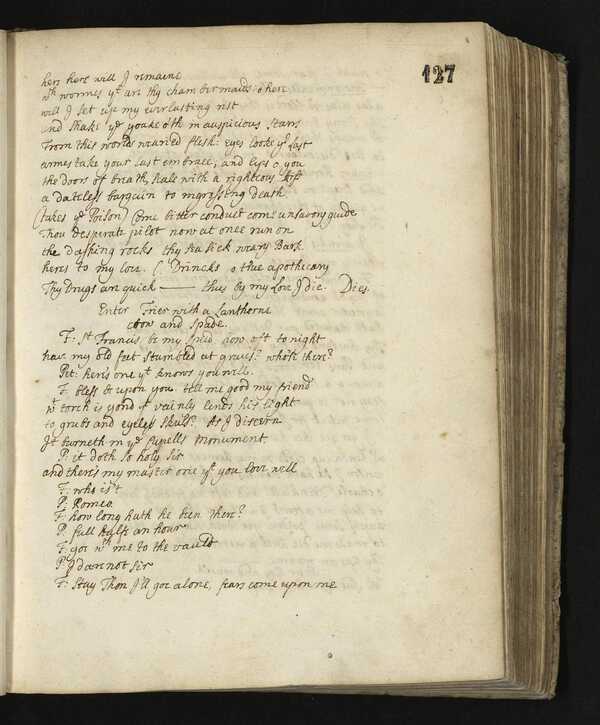 127
here here will I remaine
wth wormes yt are thy chambermaids o here
will I set up my everlasting rest
and shake ye yoake oth inauspicious stars
From this worlds wearied flesh: eyes looke yr last
armes take your last embrace, and lips o you
the doors of breath, seale with a righteous kiss
a dateless bargain to ingrossing death
(takes ye Poison) Come bitter conduct come unsavory guide
Thou desperate pilot now at once run on
the dashing rocks thy sea sick weary Bark
heres to my love. (Drincks o true apothecary
Thy drugs are quick —— thus by my Love I die. Dies.
Enter Frier with a Lanthorne
crow and spade.
F: St Francis be my speed how oft to night
have my old feet stumbled at graves? whose there?
Pet: here's one yt knows you well.
F. bless be upon you. tell me good my friend
wt torch is yond yt vainly lends his light
to grubs and eyeless skulls? As I discern
It burneth in ye Capells monument
P: it doth so holy Sir
and there's my master one yt you love well
F: who is't
P: Romeo
F: how long hath he been there?
P. full halfe an hour
F: goe wth me to the vault
P: I dare not Sir
F: Stay Then I'll goe alone, fears come upon me